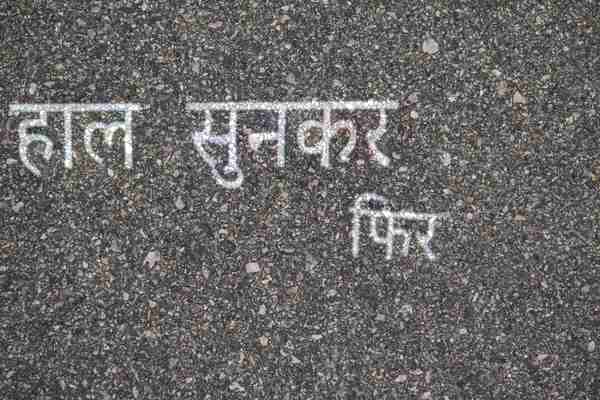 हाल सुनकर
फिर